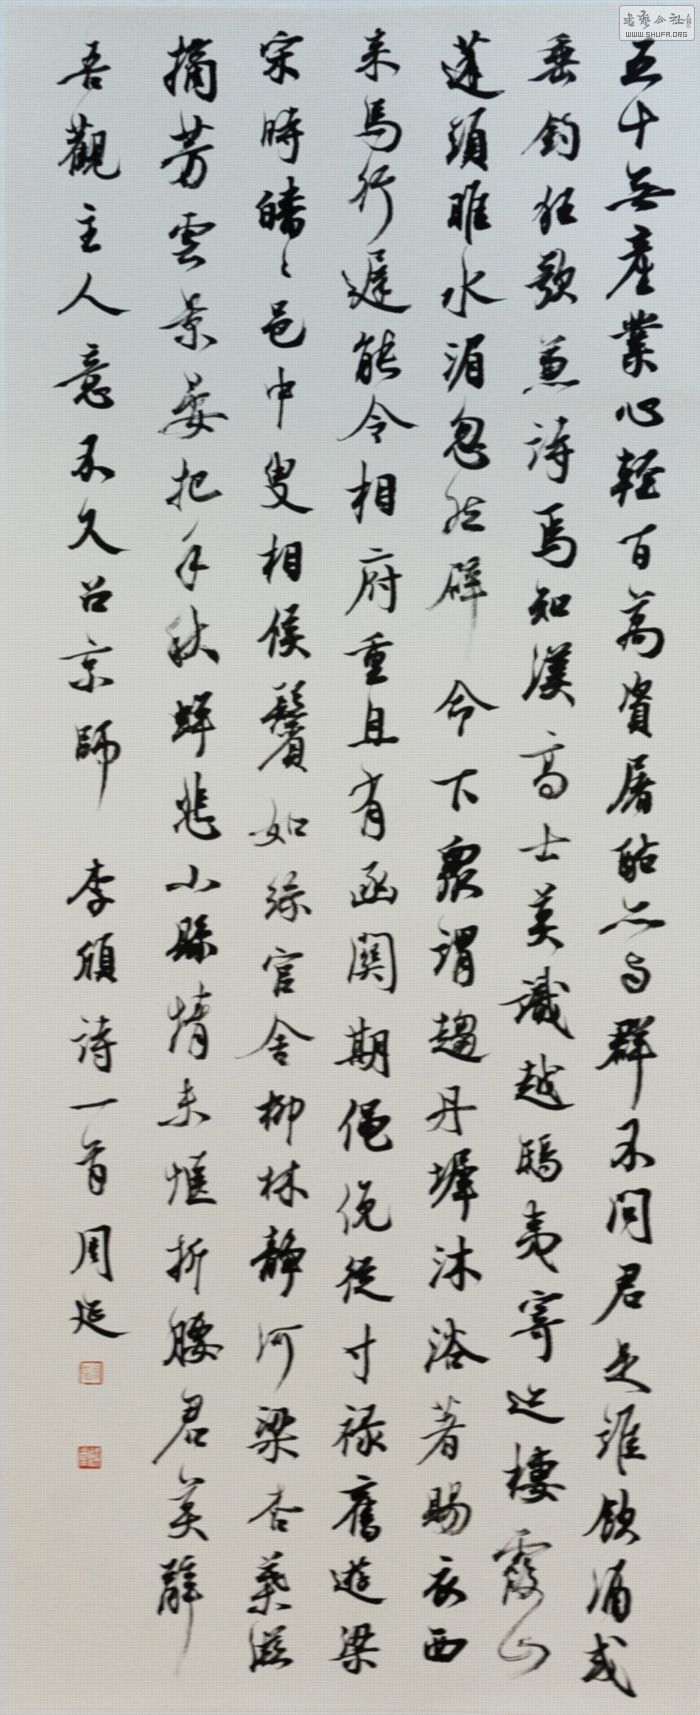 書藝公社
WWW.SHUFA.ORG
五十無產業心輕百萬資屠酤亦与群不問君是誰飲酒或
垂釣狂歌兼詩焉知漢高士莫識越鴟夷寄迹棲霞山
蓬頭睢水湄忽然辟命下眾謂趨丹墀沐浴著賜衣西
来馬行遲能令相府重且有函關期僶俛從寸禄舊遊梁
宋時皤々邑中叟相候鬢如絲官舍柳林靜河梁杏葉滋
摘芳雲景晏把手秋蟬悲小縣情未愜折腰君莫辭
吾觀主人意不久召京師 李頎詩一首 周延